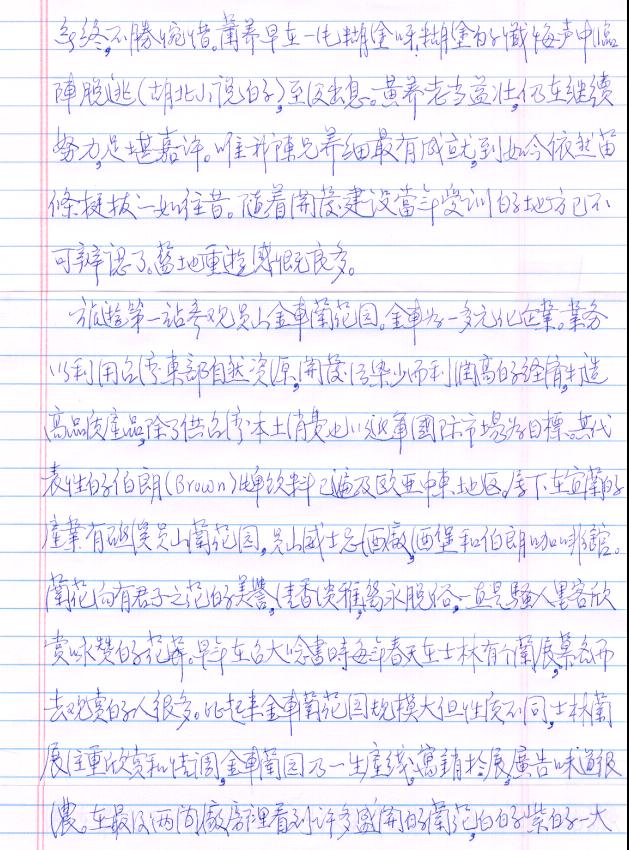 终,不勝惋惜。蘭养早在一片糊塗呀,糊塗的懺悔声中臨
陣脱逃(胡北小说白子),至沒出息。黄养老当益壮,仍在继续
努力,足堪嘉许。唯我陳兄养细最有成就,到如今依然苗
條挺拔,一如往昔。随着開發建设當年受训的地方已不
可辨認了。舊地重遊,感慨良多。
旅遊第一站参观员山金車蘭花园。金車为一多元化企業。業务
以利用台湾東部自然资源,開發污染少而利润高的经济,打造
高品质產品,除了供台湾本土消费也以進軍國际市場为目標。其代
表性的伯朗(Brown)啤饮料已遍及欧亚中東地区。屬下在宜蘭的
產業有礁溪员山蘭花园,员山威士忌酒廠,西堡和伯朗咖啡館。
蘭花向有君子之花的美譽,清香淡雅,雋永脱俗,一直是騷人墨客欣
赏咏赞的花卉。早年在台大唸書時每年春天在士林有个蘭展,慕名而
去观赏的人很多。比起来金車蘭花园规模大但性质不同,士林蘭
展注重欣赏和情调,金車蘭园乃一生產线,寓銷於展,廣告味道很
濃。在最後两间廠房裡看到许多盛開的蘭花,白的紫的一大